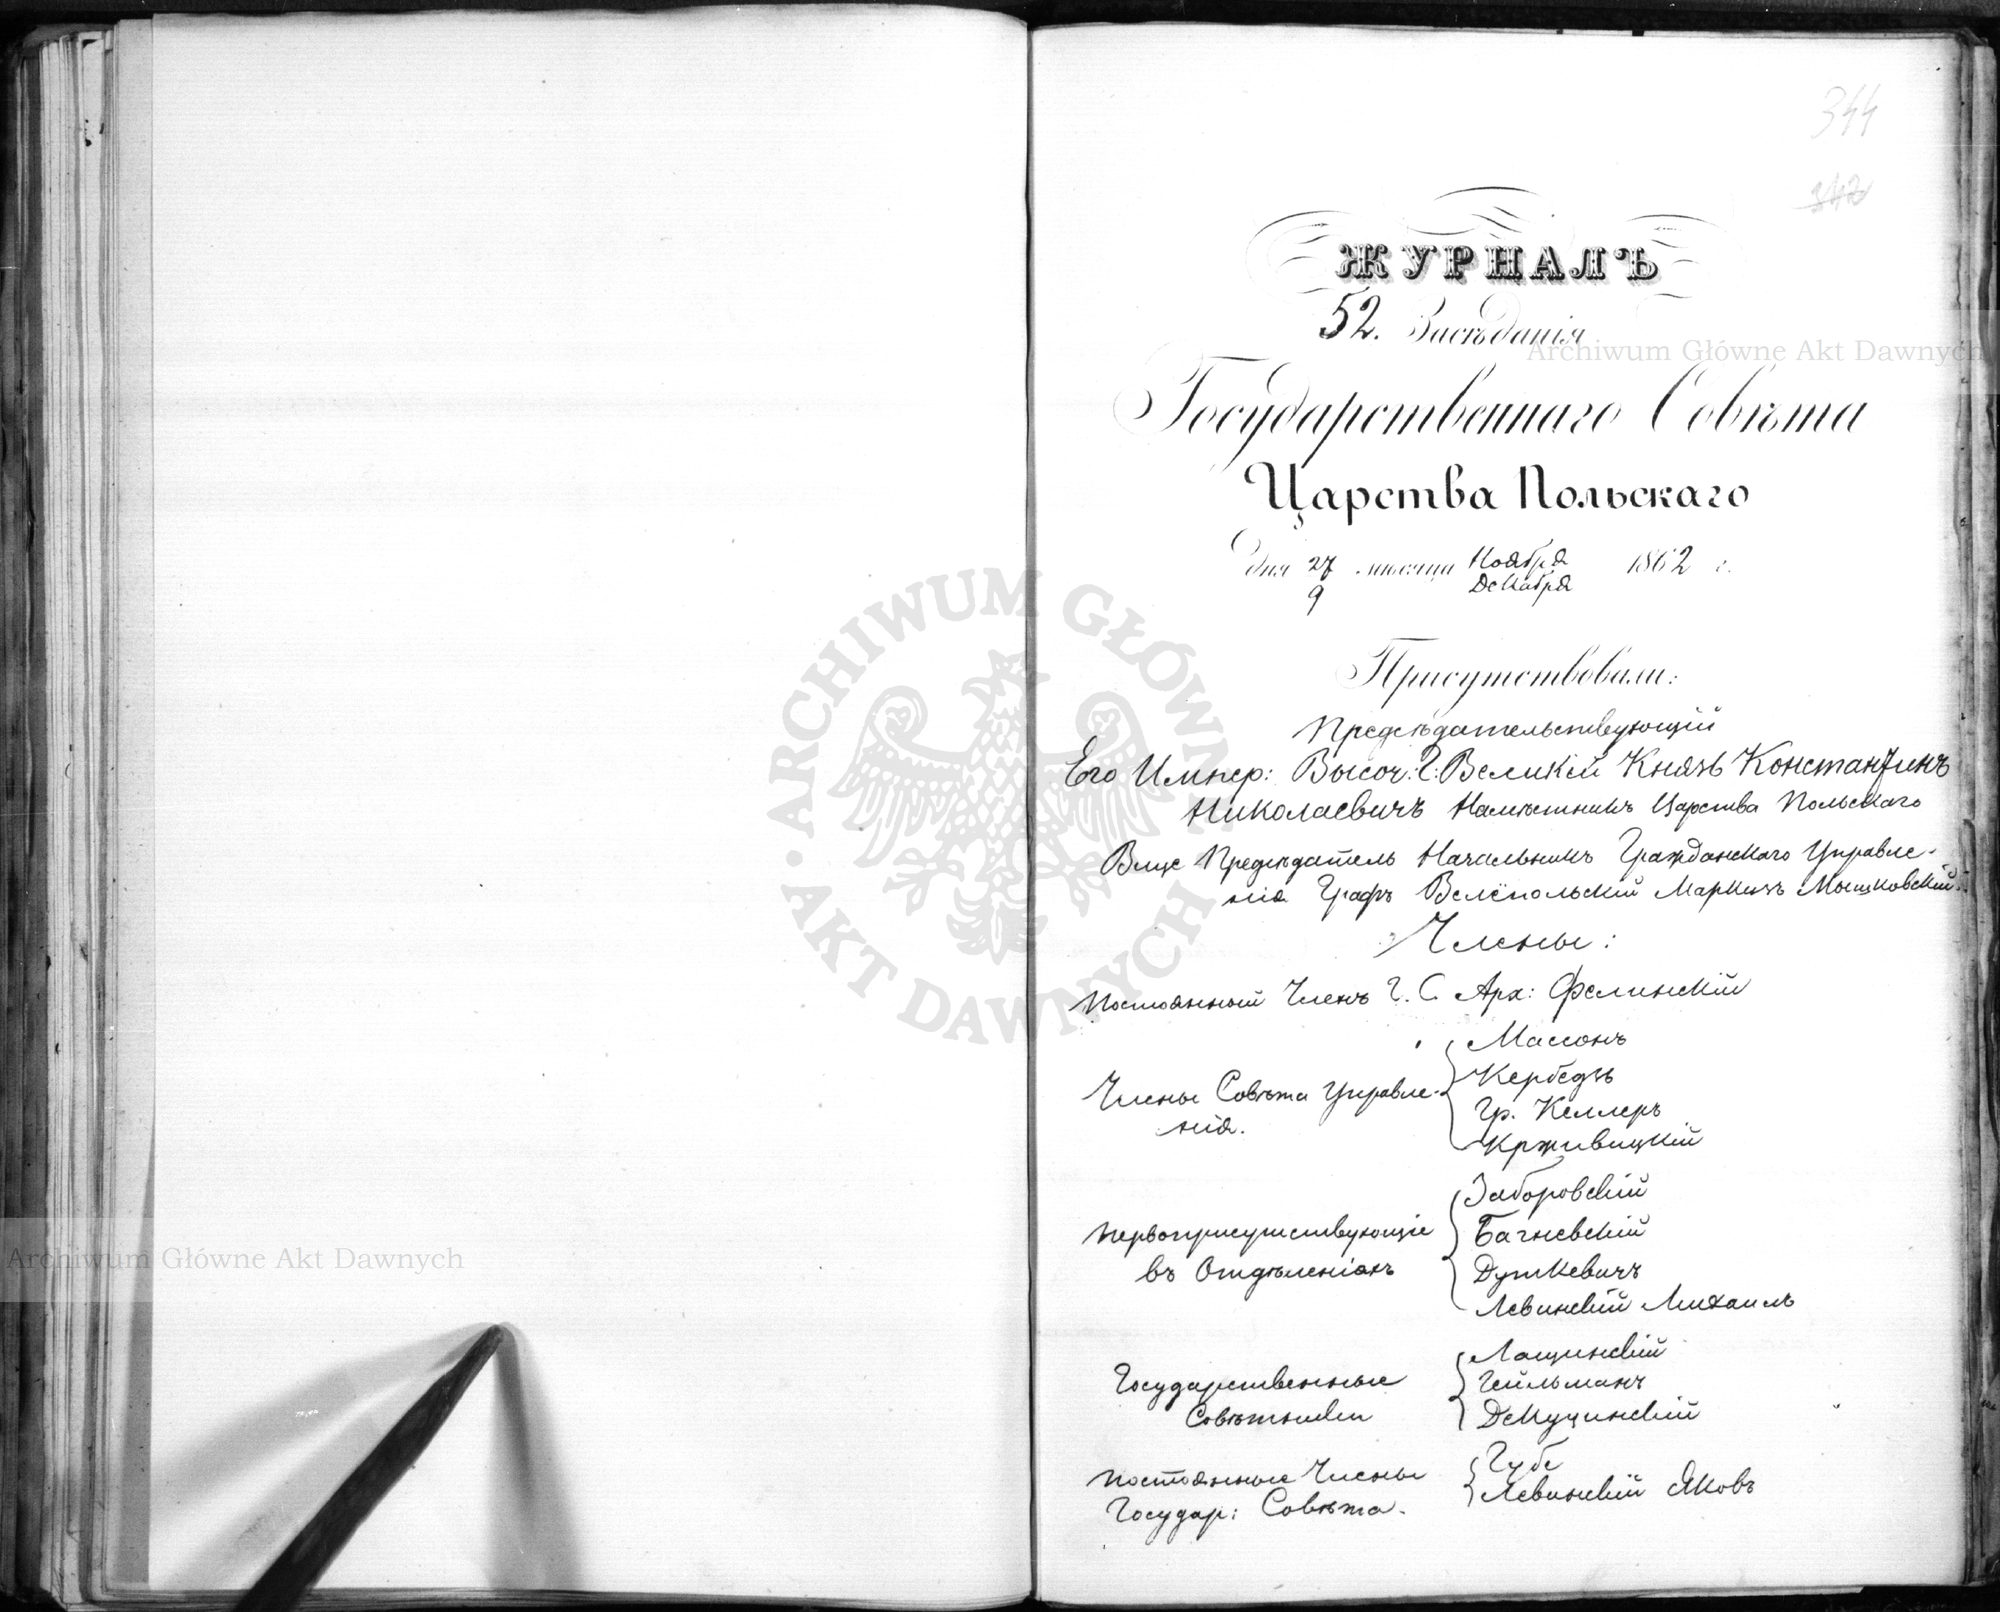 344
342
ЖУРНАЛЪ
52. Засѣданія
Государственнаго Совѣта
Царства Польскаго
дня 27 мѣсяца Ноября 1862 г.
9 Декабря
Присутствовали:
Предсѣдательствующій
Его Импер: Высоч: Г: Великій Князь Константинъ
Николаевичъ Намѣстникъ Царства Польскаго
Вице Предсѣдатель Начальникъ Гражданскаго Управле-
нія Графъ Велёпольскій Маркизъ Мышковскій
Члены:
Постоянный Членъ Г. С. Арх: Фелинскій
Массонъ
Кербедзъ
Члены Совѣта Управле-
нія.
Гр. Келлеръ
Крживицкій
Заборовскій
Первоприсутствующіе
въ Отдѣленіяхъ
Багневскій
Дуткевичъ
Левинскій Михаилъ
Лащинскій
Государственные
Совѣтники
Гейльманъ
Декуцинскій
Постоянные Члены
Государ: Совѣта.
Губе
Левинскій Яковъ
Archiwum Główne Akt Dawnych
Archiwum Główne Akt Dawnych
ARCHIWUM GŁÓWNE AKT DAWNYCH